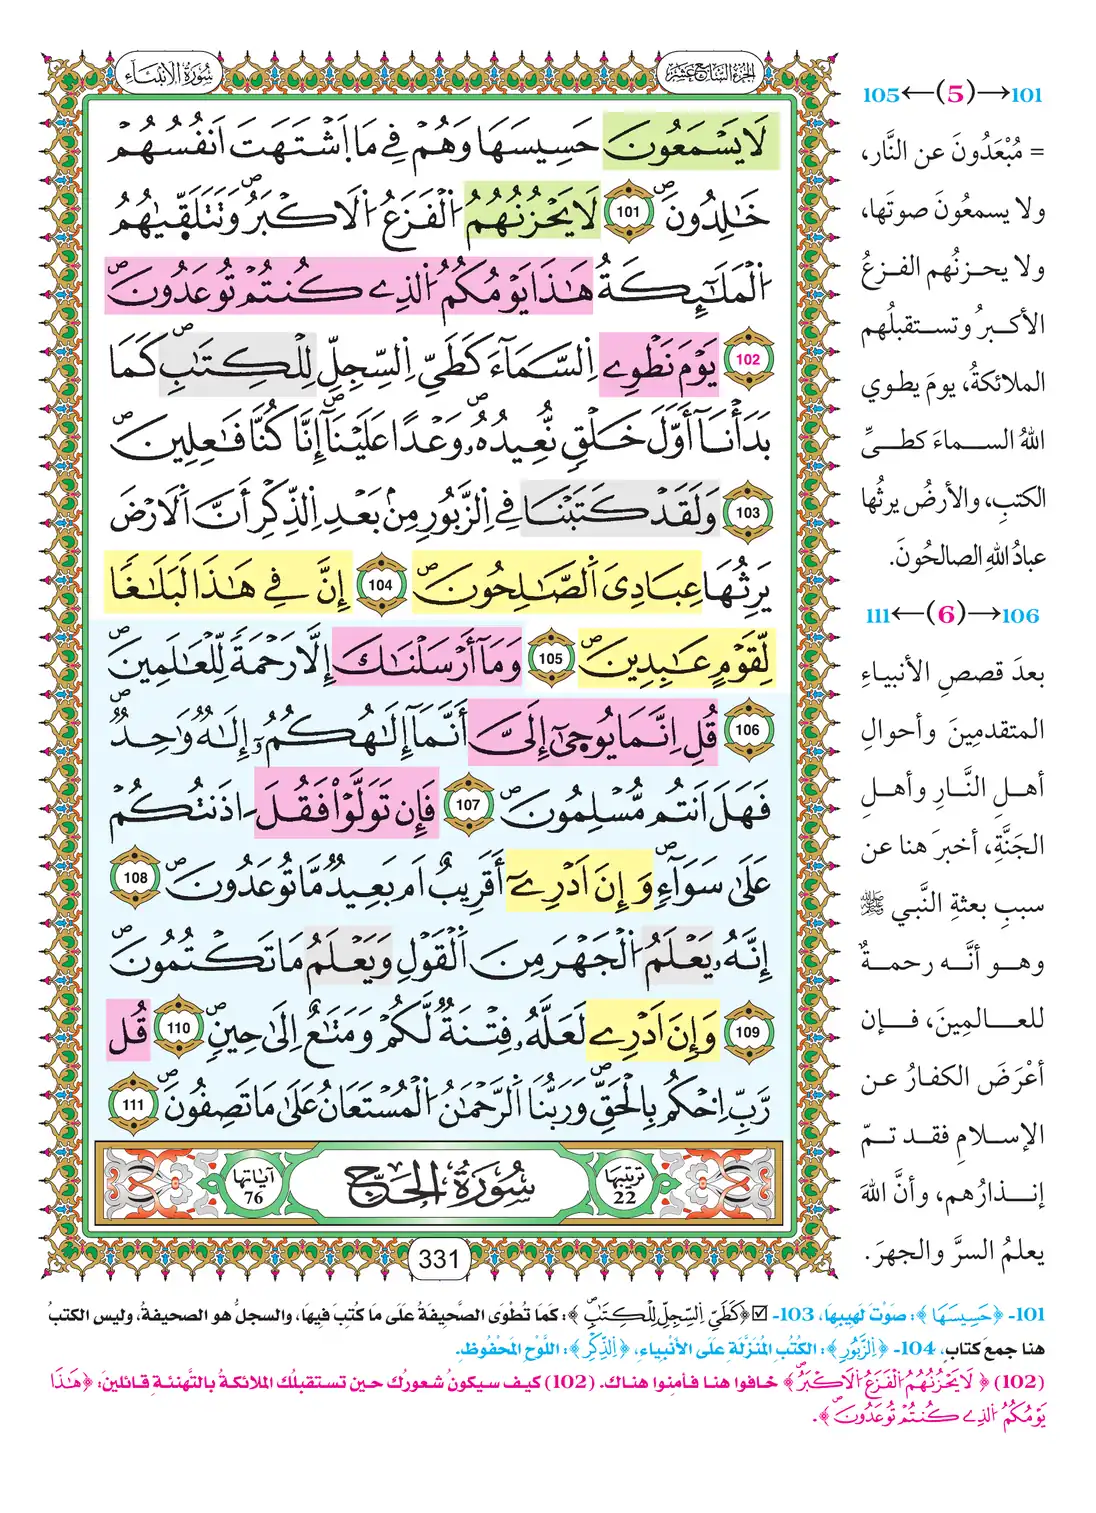 الجزء السابع عشر
سورة الأنبياء
لَا يَسْمَعُونَ حَسِيسَهَا وَهُمْ فِي مَا اَشْتَهَتَ اَنفُسُهُمْ
خَٰلِدُونَۖ 101 لَا يَحْزُنُهُمُ اُ۬لْفَزَعُ اُ۬لَاكْبَرُۖ وَتَتَلَقّ۪يٰهُمُ
اُ۬لْمَلَٰٓئِكَةُ هَٰذَا يَوْمُكُمُ اُ۬لذِے كُنتُمْ تُوعَدُونَۖ
102 يَوْمَ نَطْوِے اِ۬لسَّمَآءَ كَطَيِّ اِ۬لسِّجِلِّ لِلْكِتَٰبِۖ كَمَا
بَدَأْنَآ أَوَّلَ خَلْقٖ نُّعِيدُهُۥۖ وَعْداً عَلَيْنَآۖ إِنَّا كُنَّا فَٰعِلِينَۖ
103 وَلَقَدْ كَتَبْنَا فِے اِ۬لزَّبُورِ مِنۢ بَعْدِ اِ۬لذِّكْرِ أَنَّ اَ۬لَارْضَ
يَرِثُهَا عِبَادِيَ اَ۬لصَّٰلِحُونَۖ 104 إِنَّ فِي هَٰذَا لَبَلَٰغاً
لِّقَوْمٍ عَٰبِدِينَۖ 105 وَمَآ أَرْسَلْنَٰكَ إِلَّا رَحْمَةً لِّلْعَٰلَمِينَۖ
106 قُلِ اِنَّمَا يُوح۪ىٰٓ إِلَيَّ أَنَّمَآ إِلَٰهُكُمُۥٓ إِلَٰهٌ وَٰحِدٌ
فَهَلَ اَنتُم مُّسْلِمُونَۖ 107 فَإِن تَوَلَّوْاْ فَقُلَ اٰذَنتُكُمْ
عَلَىٰ سَوَآءٍۖ وَإِنَ اَدْرِےٓ أَقَرِيبٌ اَم بَعِيدٌ مَّا تُوعَدُونَۖ 108
إِنَّهُۥ يَعْلَمُ اُ۬لْجَهْرَ مِنَ اَ۬لْقَوْلِ وَيَعْلَمُ مَا تَكْتُمُونَۖ
109 وَإِنَ اَدْرِے لَعَلَّهُۥ فِتْنَةٌ لَّكُمْ وَمَتَٰعٌ اِلَىٰ حِينٖۖ 110 قُل
رَّبِّ اِ۟حْكُم بِالْحَقِّۖ وَرَبُّنَا اَ۬لرَّحْمَٰنُ اُ۬لْمُسْتَعَانُ عَلَىٰ مَا تَصِفُونَۖ 111
ترتيبها 22 سُورَةُ الحَجّ آياتها 76
331
101→(5)←105
= مُبْعَدُونَ عن النَّار،
ولا يسمعُونَ صوتَها،
ولا يحـزنُهم الفـزعُ
الأكـبرُ وتستـقبلُهم
الملائكةُ، يومَ يطوي
اللهُ السماءَ كطيِّ
الكتبِ، والأرضُ يرثُها
عبادُ اللهِ الصالحُونَ.
106→(6)←111
بعدَ قصصِ الأنبياءِ
المتقدمِينَ وأحوالِ
أهلِ النَّارِ وأهلِ
الجَنَّةِ، أخبرَ هنا عن
سببِ بعثةِ النَّبي ﷺ
وهو أنَّه رحمةٌ
للعالمِينَ، فإن
أعْرَضَ الكفارُ عن
الإسلامِ فقد تمّ
إنذارُهم، وأنَّ اللهَ
يعلمُ السرَّ والجهرَ.
101- ﴿حَسِيسَهَا﴾: صَوْتَ لَهِيبِهَا، 103- ☑﴿كَطَيِّ اِ۬لسِّجِلِّ لِلْكِتَٰبِۖ﴾: كَمَا تُطْوَى الصَّحِيفَةُ عَلَى مَا كُتِبَ فِيهَا، والسجلُّ هو الصحيفةُ، وليس الكتبُ
هنا جمعَ كتابٍ، 104- ﴿اِ۬لزَّبُورِ﴾: الكُتُبِ المُنَزَّلَةِ عَلَى الأَنْبِيَاءِ، ﴿اِ۬لذِّكْرِ﴾: اللَّوْحِ المَحْفُوظِ.
(102) ﴿لَا يَحْزُنُهُمُ اُ۬لْفَزَعُ اُ۬لَاكْبَرُۖ﴾ خافوا هنا فأمِنوا هناك. (102) كيف سيكونُ شعورُك حين تستقبلُك الملائكةُ بالتَّهنئةِ قائلينَ: ﴿هَٰذَا
يَوْمُكُمُ اُ۬لذِے كُنتُمْ تُوعَدُونَۖ﴾.